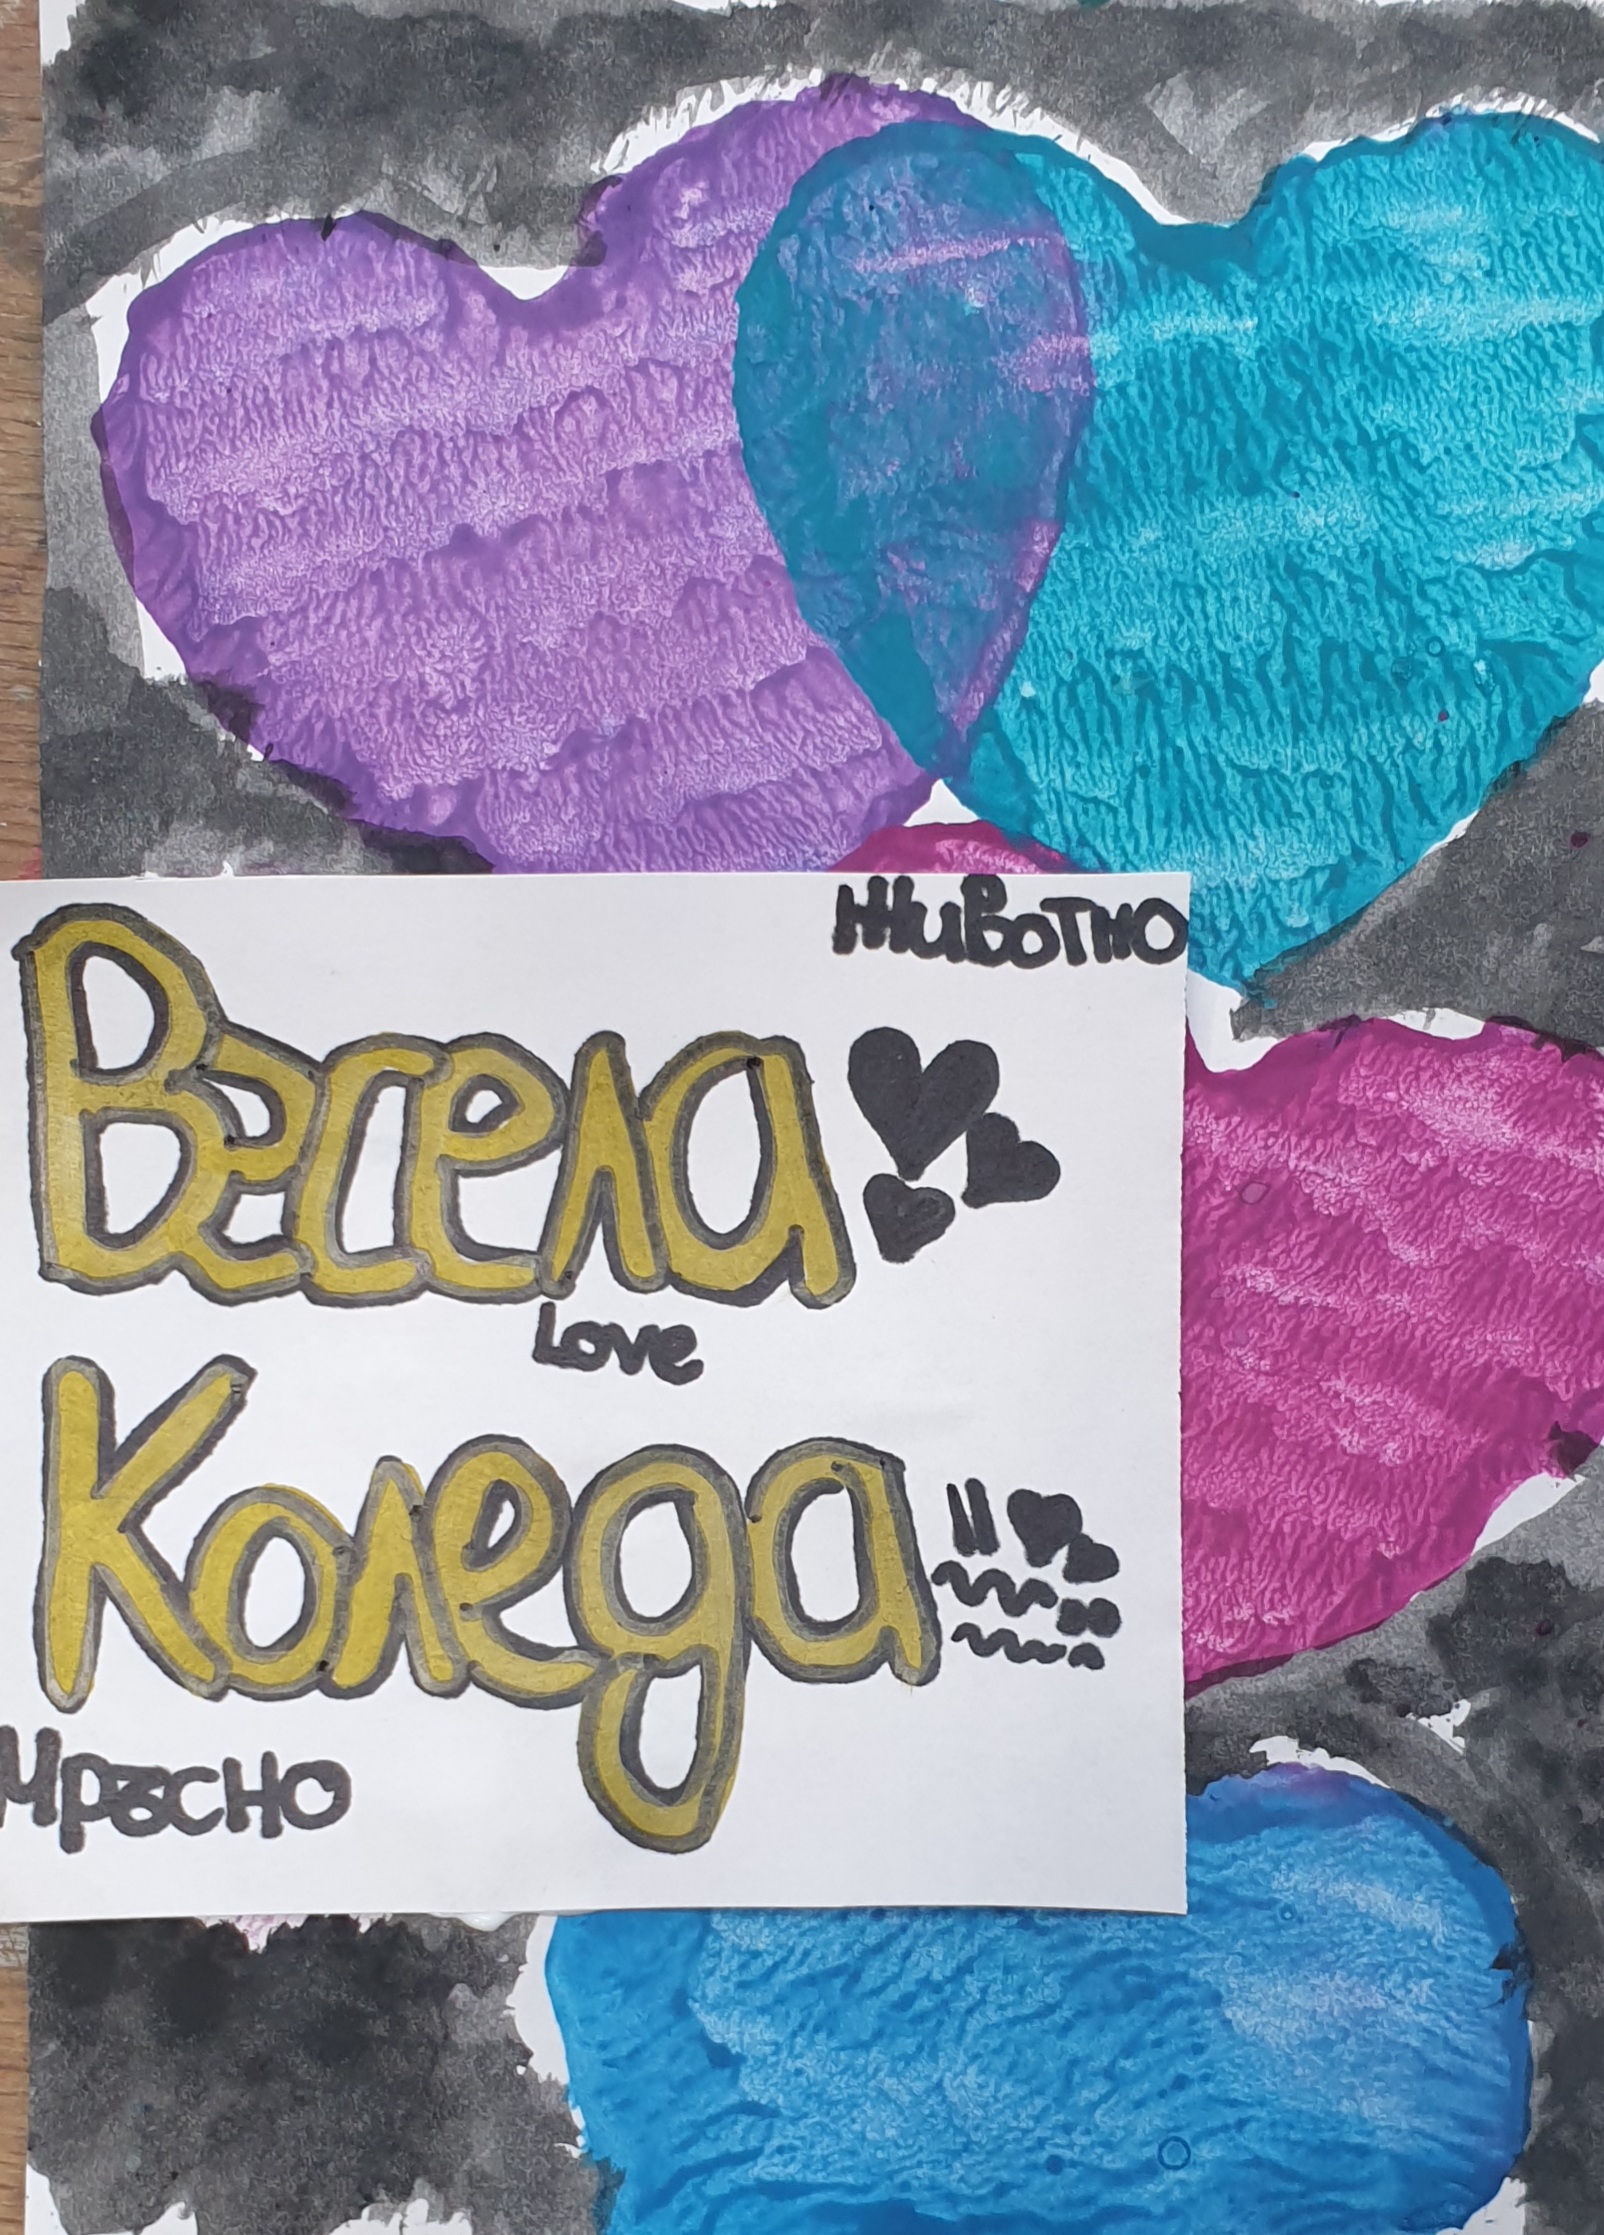 Животно
Весела
Love
Коледа
Мръсно